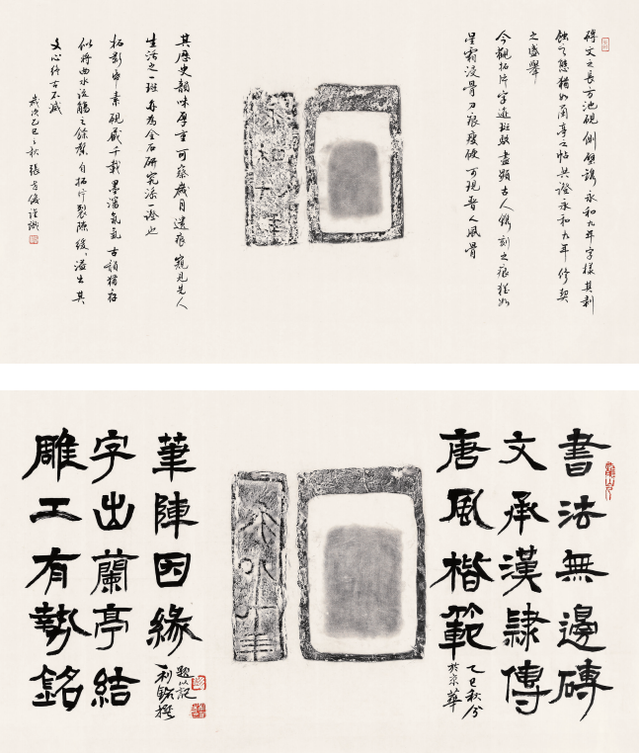 磚文之長方池硯側壁鐫永和九年字樣其剝
蝕之態猶如蘭亭之帖共證永和九年修契
之盛舉
今觀拓片字迹斑駁盡顯古人鐫刻之痕猶如
星霜浸骨刀痕瘦硬可現晉人風骨
其歷史韻味厚重可察歲月遺痕窺見先人
生活之一斑亦為金石研究添一證也
拓影素硯藏千載墨瀋氤氳古韻猶存
似將曲水流觴之餘自拓片隙緩溢出其
文心終古不滅
歲次乙巳之秋張謹識
書法無邊磚
文承漢隸傳
唐風楷範
乙巳秋兮
於京華
筆陣因緣
字出蘭亭結
雕工有勢銘
題以記
利銘撰